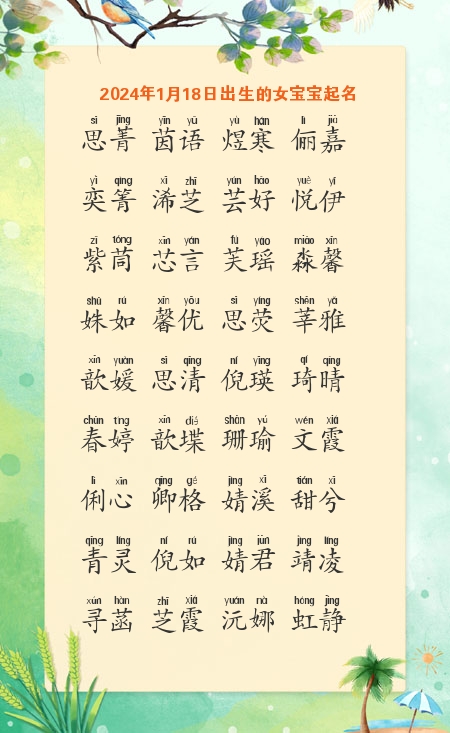 2024年1月18日出生的女宝宝起名
sī jīng yīn yǔ yù hán lì jiā
思菁 茵语 煜寒 俪嘉
yì qìng xī zhī yún hǎo yuè yī
奕箐 浠芝 芸好 悦伊
zǐ tóng xīn yán fú yáo miǎo xīn
紫茼 芯言 芙瑶 淼馨
shū rú xīn yōu sī yíng shēn yǎ
姝如 馨优 思荧 莘雅
xīn yuán sī qīng ní yīng qí qíng
歆媛 思清 倪瑛 琦晴
chūn tíng xīn dié shān yú wén xiá
春婷 歆堞 珊瑜 文霞
lì xīn qīng gé jìng xī tián xī
俐心 卿格 婧溪 甜兮
qīng líng ní rú jìng jūn jìng líng
青灵 倪如 婧君 靖凌
xún hàn zhī xiá yuán nà hóng jìng
寻菡 芝霞 沅娜 虹静